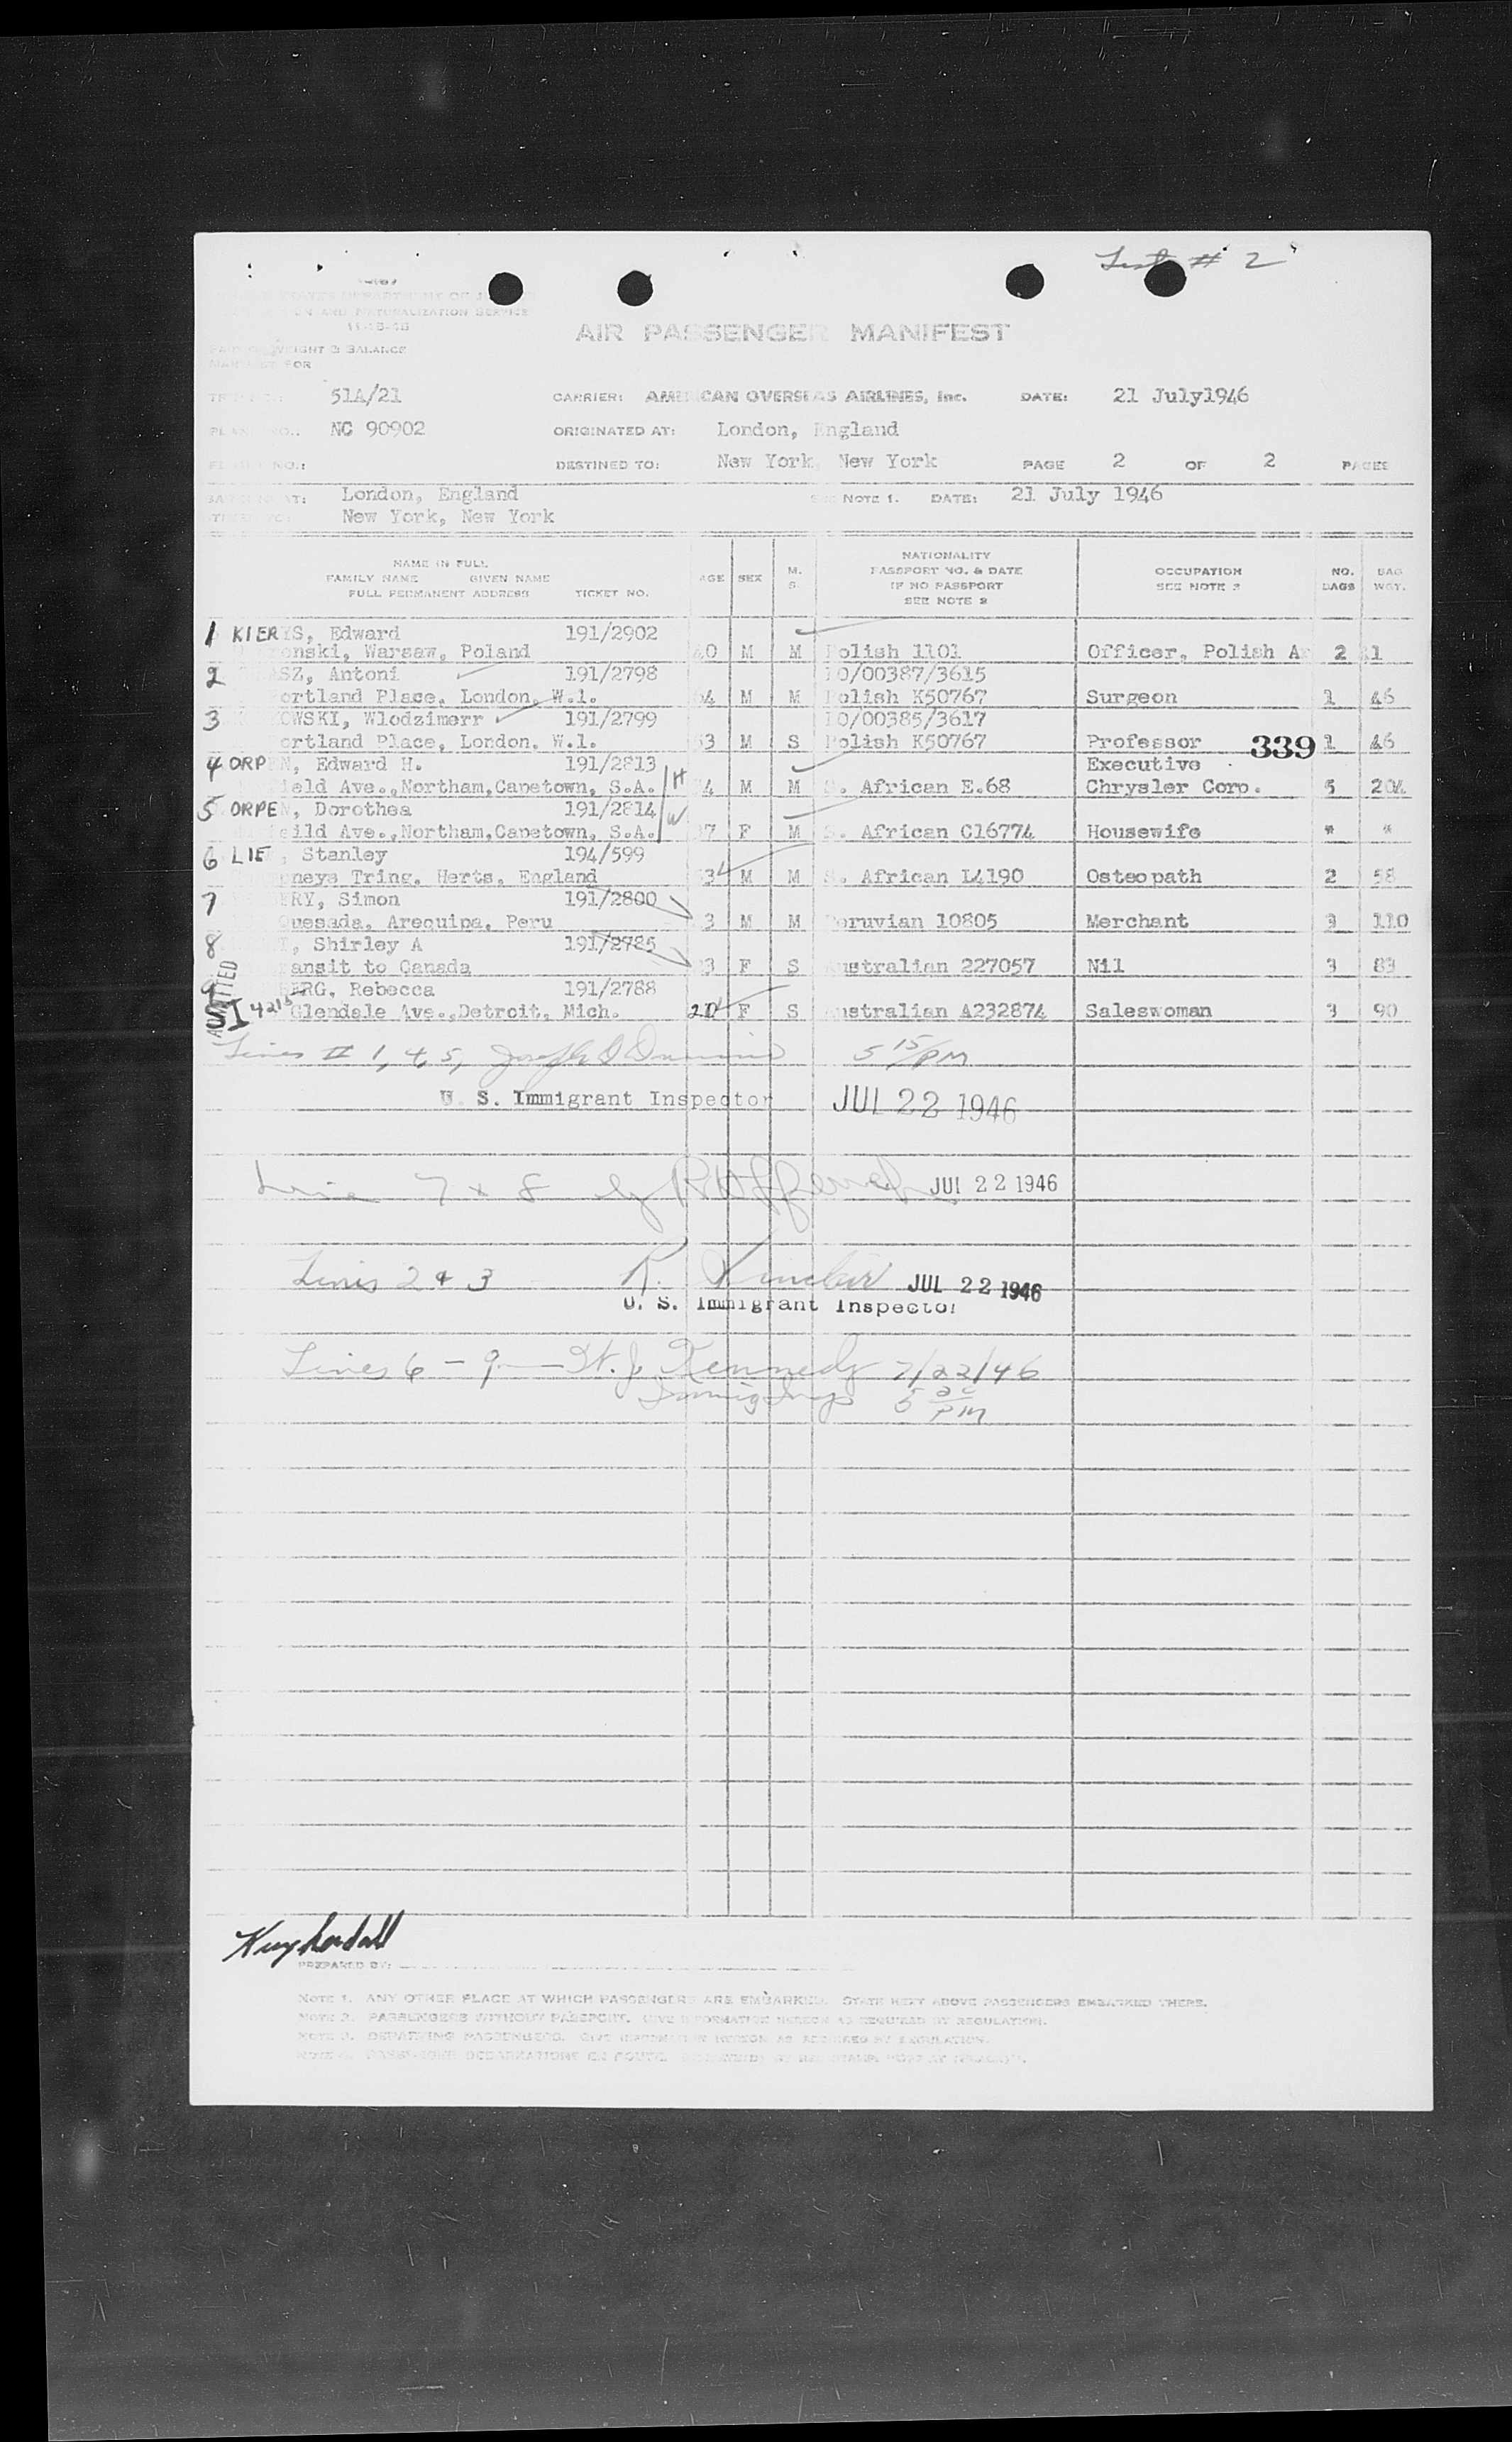 List # 2
11-15-45
AIR PASSENGER MANIFEST
WEIGHT & BALANCE
FOR
51A/21 CARRIER: AMERICAN OVERSEAS AIRLINES, Inc. DATE: 21 July1946
NC 90902 ORIGINATED AT: London, England
NO.: DESTINED TO: New York, New York PAGE 2 OF 2 PAGES
AT: London, England NOTE 1. DATE: 21 July 1946
New York, New York
NAME IN FULL
FAMILY NAME GIVEN NAME
FULL PERMANENT ADDRESS TICKET NO. AGE SEX M. S. NATIONALITY PASSPORT NO. & DATE IF NO PASSPORT SEE NOTE 2 OCCUPATION SEE NOTE 3 NO. BAGS BAG WGT.
1 KIERYS, Edward 191/2902
onski, Warsaw, Poland 40 M M Polish 1101 Officer, Polish A 2 1
2 SZ, Antoni 191/2798 10/00387/3615
ortland Place, London, W.1. 4 M M Polish K50767 Surgeon 1 46
3 OWSKI, Wlodzimerr 191/2799 10/00385/3617
ortland Place, London, W.1. 53 M S Polish K50767 Professor 339 1 46
4 ORPEN, Edward H. 191/2813 Executive
ield Ave.,Northam,Capetown, S.A. H 4 M M S. African E.68 Chrysler Corp. 5 204
5 ORPEN, Dorothea 191/2814
eild Ave.,Northam,Capetown, S.A. W 7 F M S. African C16774 Housewife " "
6 LIE , Stanley 194/599
neys Tring, Herts, England 3 M M S. African L4190 Osteopath 2 58
7 ERY, Simon 191/2800
Quesada, Arequipa, Peru 3 M M Peruvian 10805 Merchant 3 110
8 , Shirley A 191/2785
ransit to Canada 3 F S Australian 227057 Nil 3 83
9 BERG, Rebecca 191/2788
SI 4215 Glendale Ave.,Detroit, Mich. 21 F S Australian A232874 Saleswoman 3 90
Lines # 1, 4, 5, 5 15/PM
U. S. Immigrant Inspector JUL 22 1946
Lines 7 & 8 by JUL 22 1946
Lines 2 & 3 R. Sinclair JUL 22 1946
U. S. Immigrant Inspector
Lines 6 - 9 — H. J. Kennedy 7/22/46
Immig Insp 5 PM
PREPARED BY:
NOTE 1. ANY OTHER PLACE AT WHICH PASSENGERS ARE EMBARKED. STATE NEXT ABOVE PASSENGERS EMBARKED THERE.
NOTE 2. PASSENGERS WITHOUT PASSPORT. GIVE INFORMATION HEREON AS REQUIRED BY REGULATION.
NOTE 3. DEPARTING PASSENGERS. GIVE INFORMATION HEREON AS REQUIRED BY REGULATION.